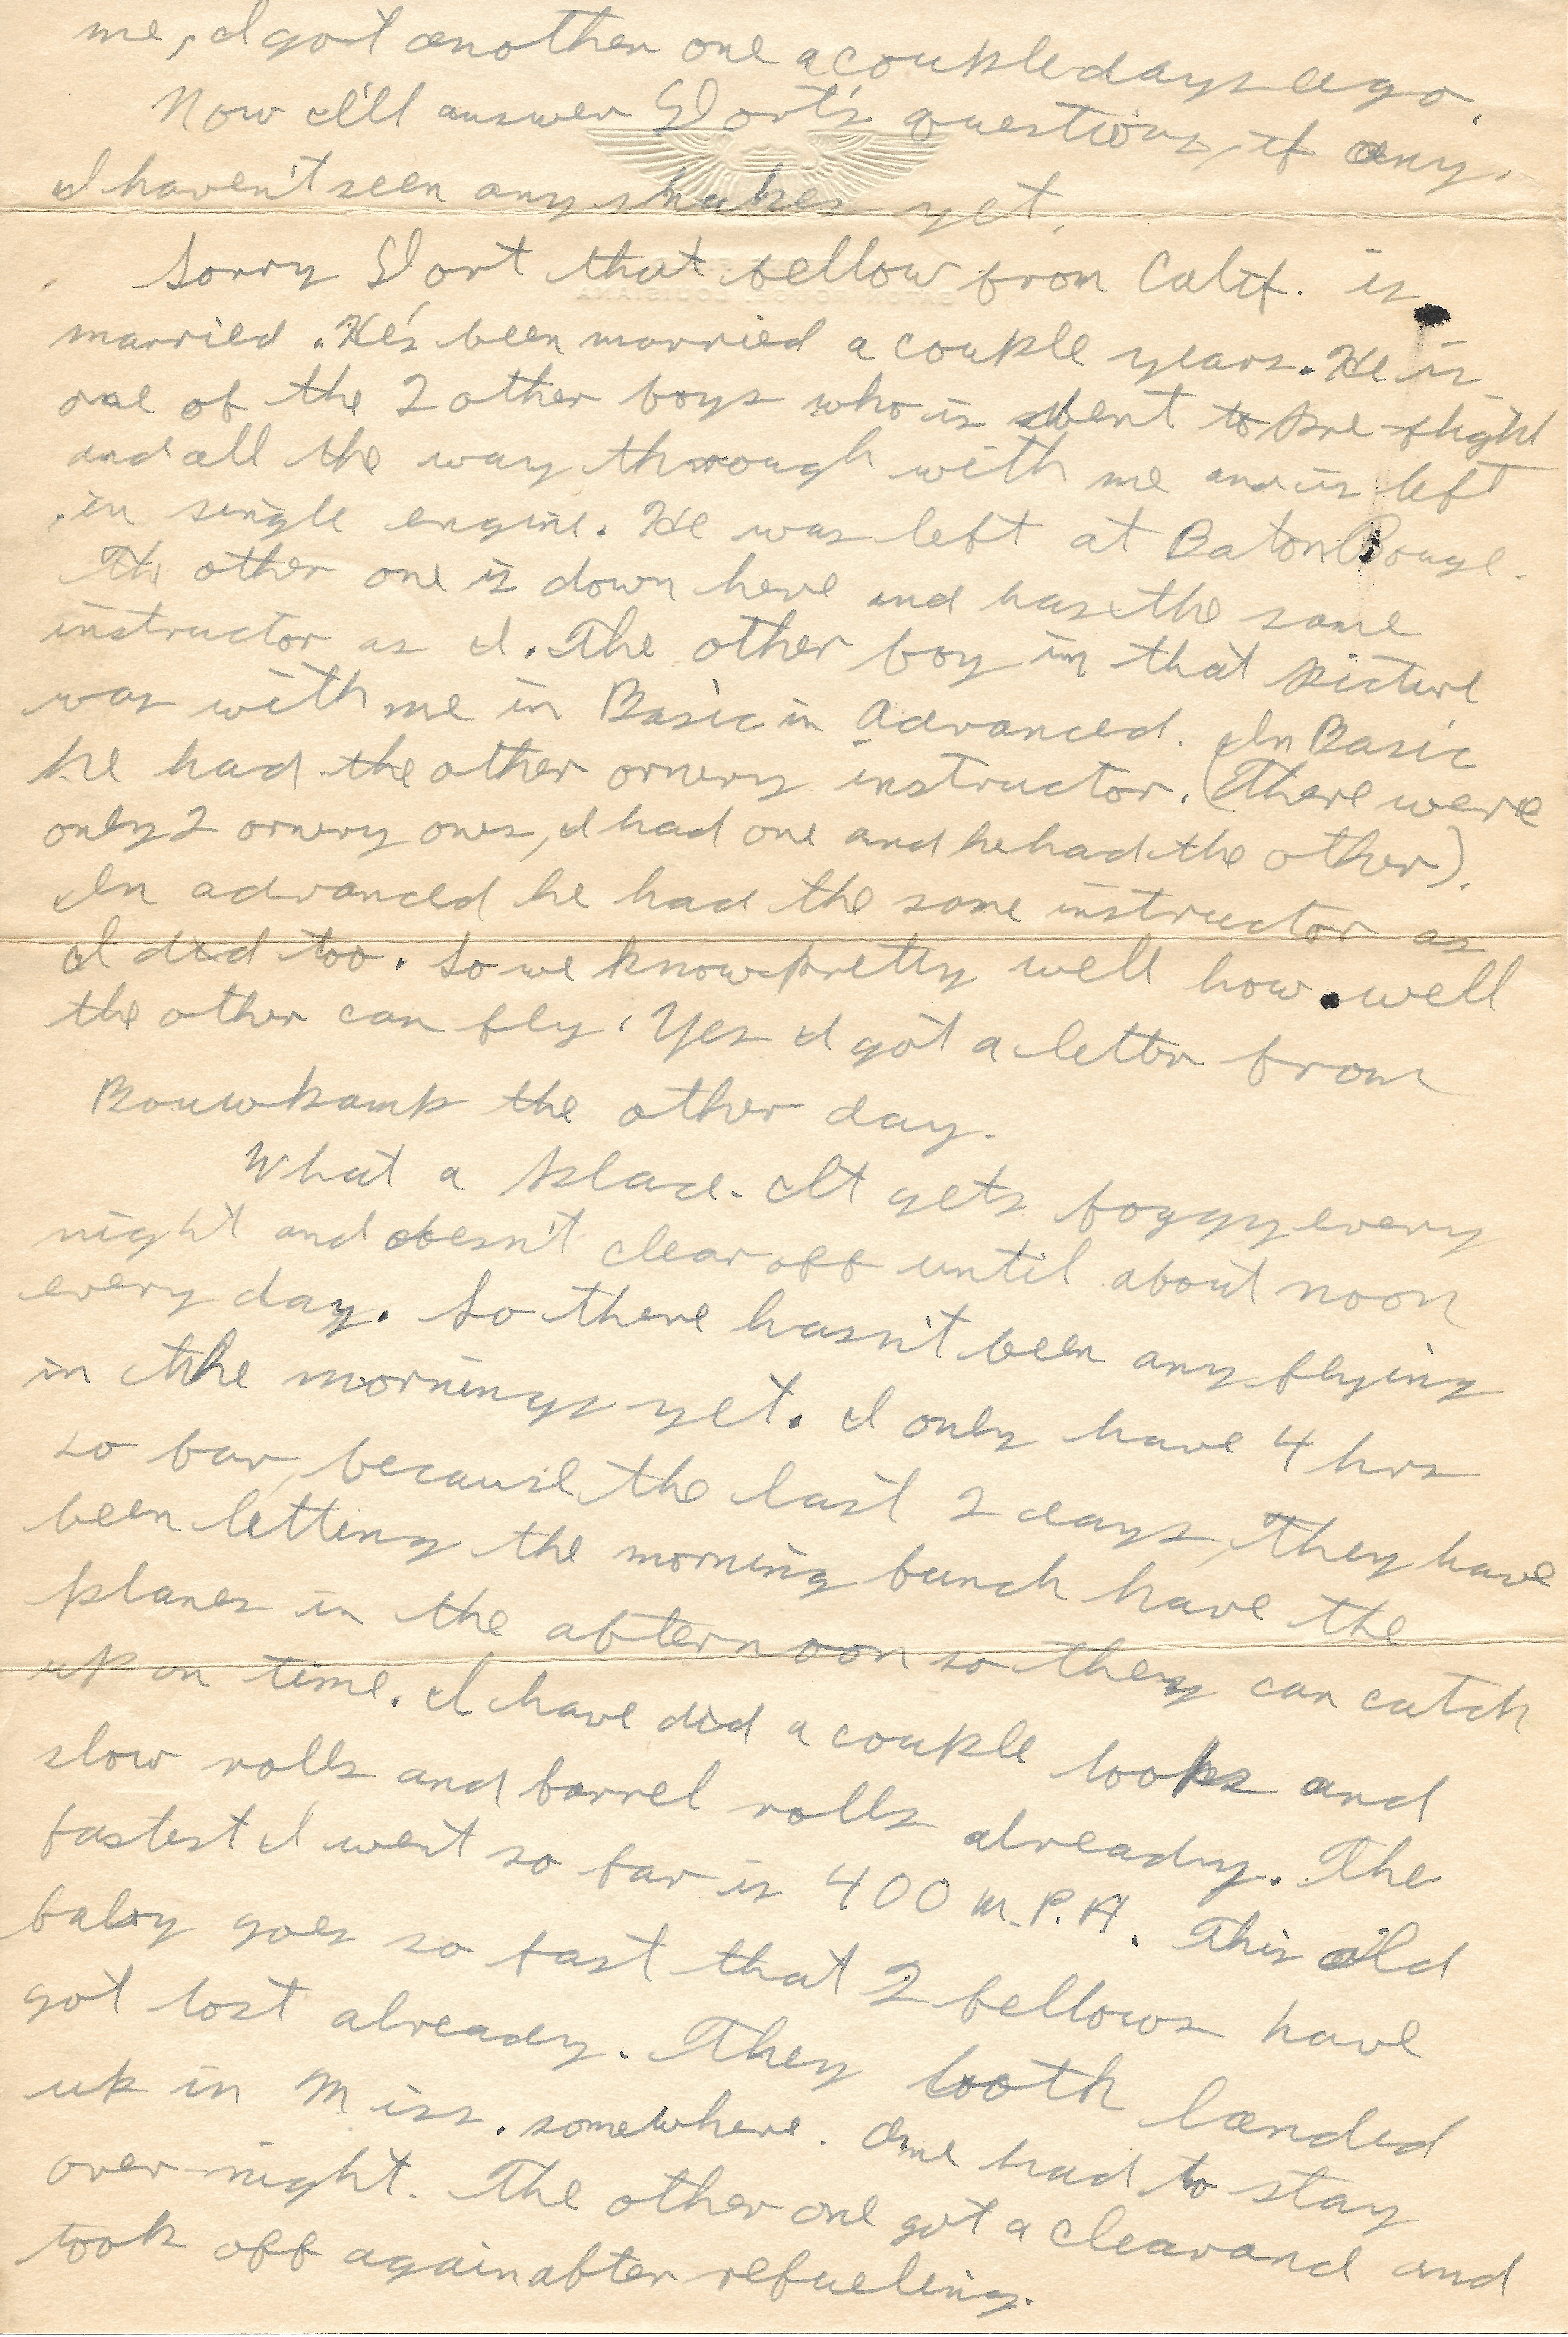 me, I got another one a couple days ago.
Now I'll answer Dort's questions, if any.
I haven't seen any snakes yet.
Sorry Dort that fellow from Calif. is
married. He's been married a couple years. He is
one of the 2 other boys who is went to Pre-flight
and all the way through with me and is left
in single engine. He was left at Baton Rouge.
The other one is down here and has the same
instructor as I. The other boy in that picture
was with me in Basic in Advanced. In Basic
he had the other ornery instructor. (There were
only 2 ornery ones, I had one and he had the other).
In advanced he had the same instructor as
I did too. So we know pretty well how well
the other can fly. Yes I got a letter from
Bouwkamp the other day.
What a place. It gets foggy every
night and doesn't clear off until about noon
every day. So there hasn't been any flying
in the mornings yet. I only have 4 hrs
so far, because the last 2 days, they have
been letting the morning bunch have the
planes in the afternoon so they can catch
up on time. I have did a couple loops and
slow rolls and barrel rolls already. The
fastest I went so far is 400 M.P.H. This old
baby goes so fast that 2 fellows have
got lost already. They both landed
up in Miss. somewhere. One had to stay
over night. The other one got a clearand and
took off again after refueling.